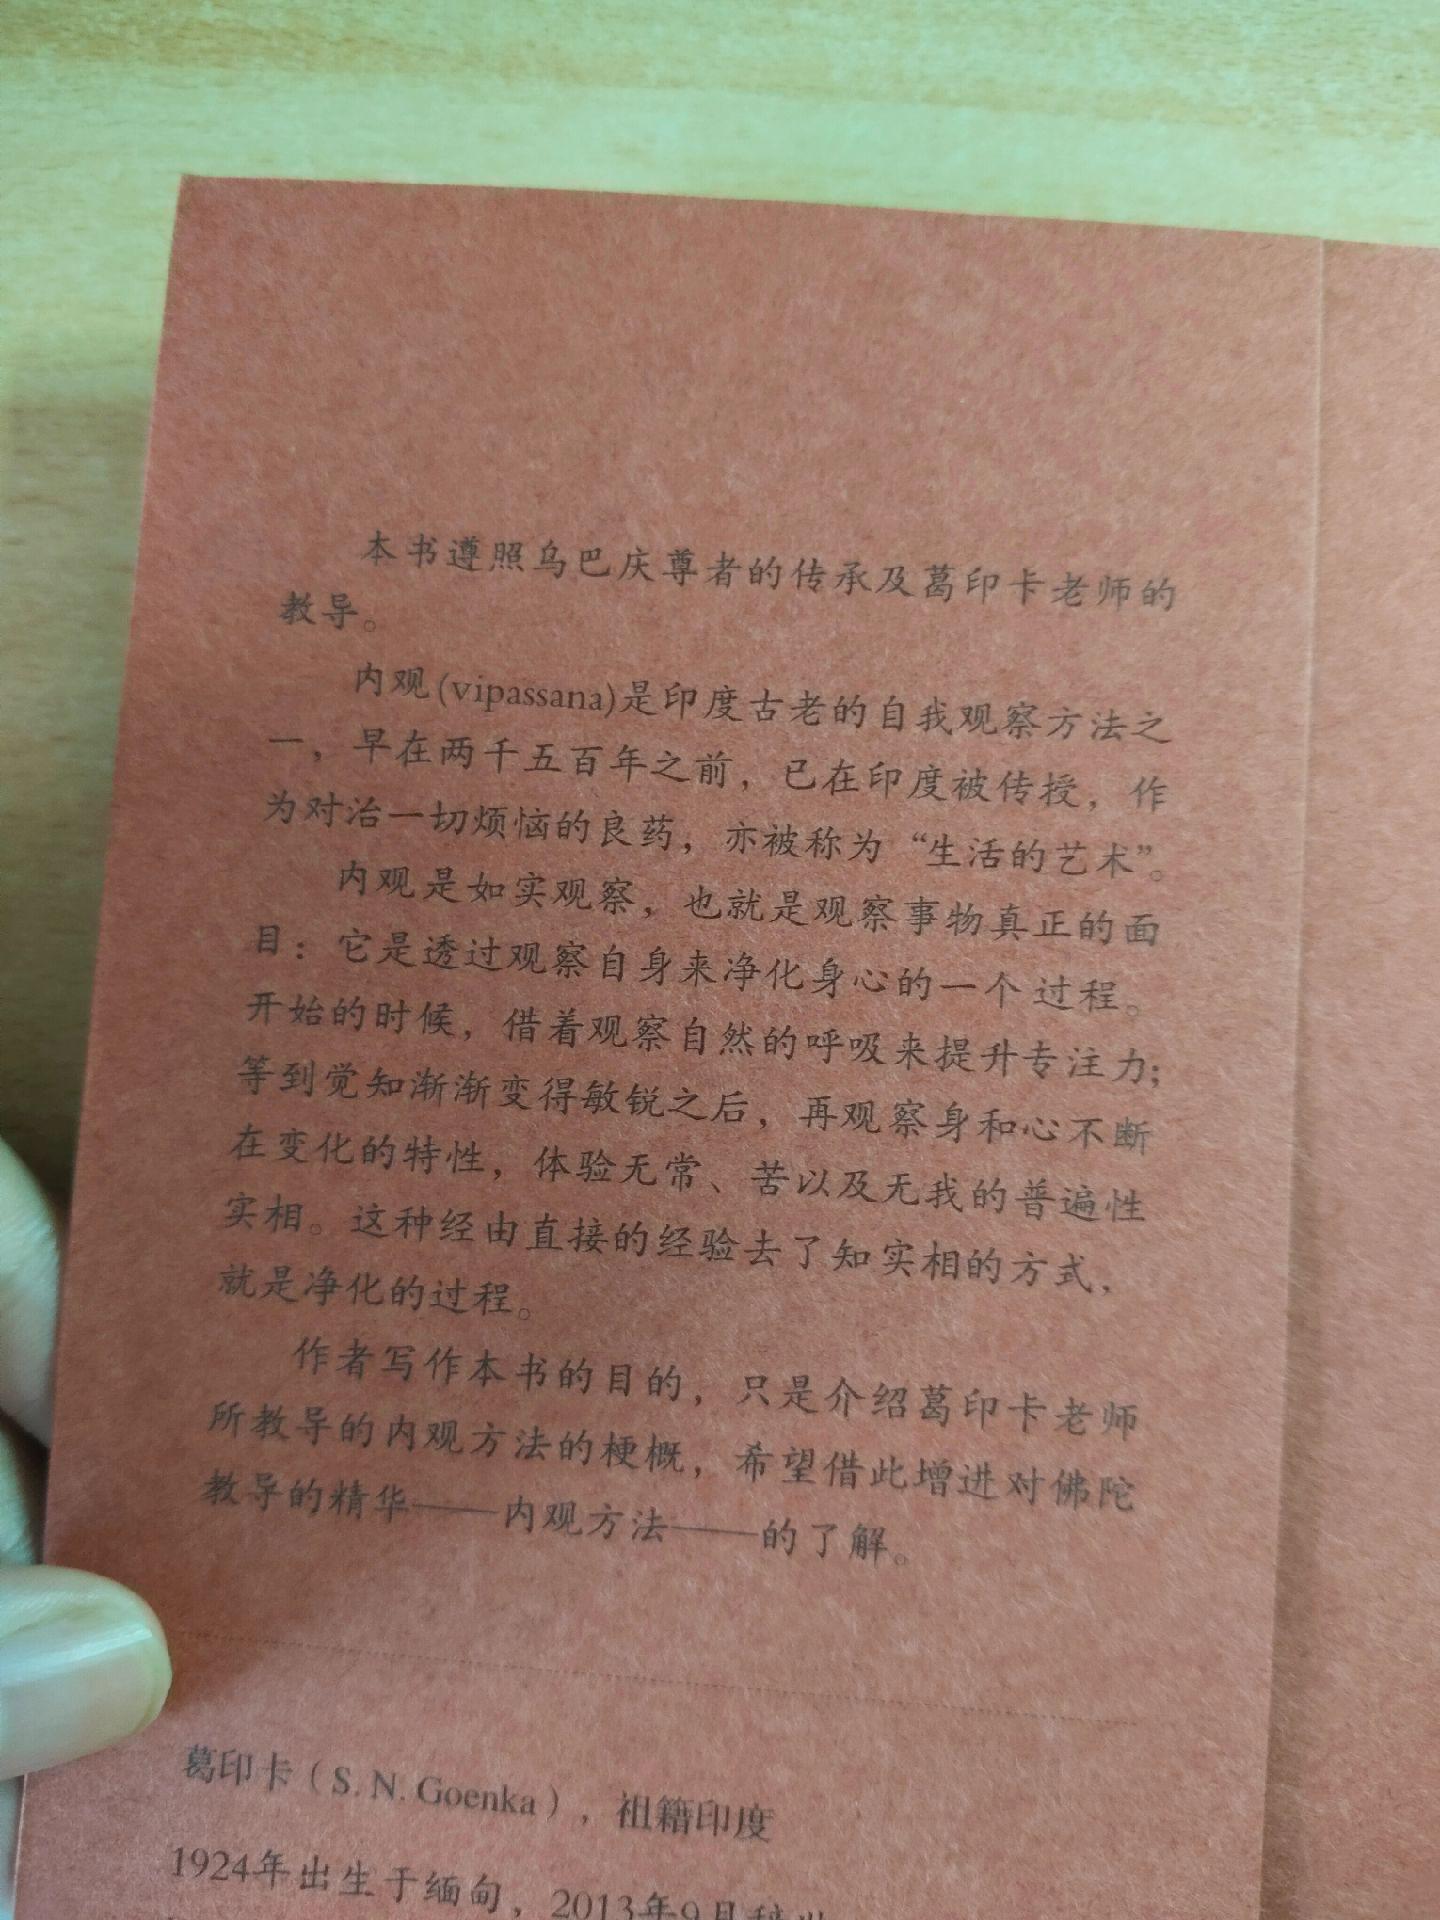 本书遵照乌巴庆尊者的传承及葛印卡老师的
教导。
内观(vipassana)是印度古老的自我观察方法之
一，早在两千五百年之前，已在印度被传授，作
为对治一切烦恼的良药，亦被称为“生活的艺术”。
内观是如实观察，也就是观察事物真正的面
目：它是透过观察自身来净化身心的一个过程。
开始的时候，借着观察自然的呼吸来提升专注力；
等到觉知渐渐变得敏锐之后，再观察身和心不断
在变化的特性，体验无常、苦以及无我的普遍性
实相。这种经由直接的经验去了知实相的方式，
就是净化的过程。
作者写作本书的目的，只是介绍葛印卡老师
所教导的内观方法的梗概，希望借此增进对佛陀
教导的精华——内观方法——的了解。
葛印卡（S. N. Goenka），祖籍印度
1924年出生于缅甸，2013年9月辞世